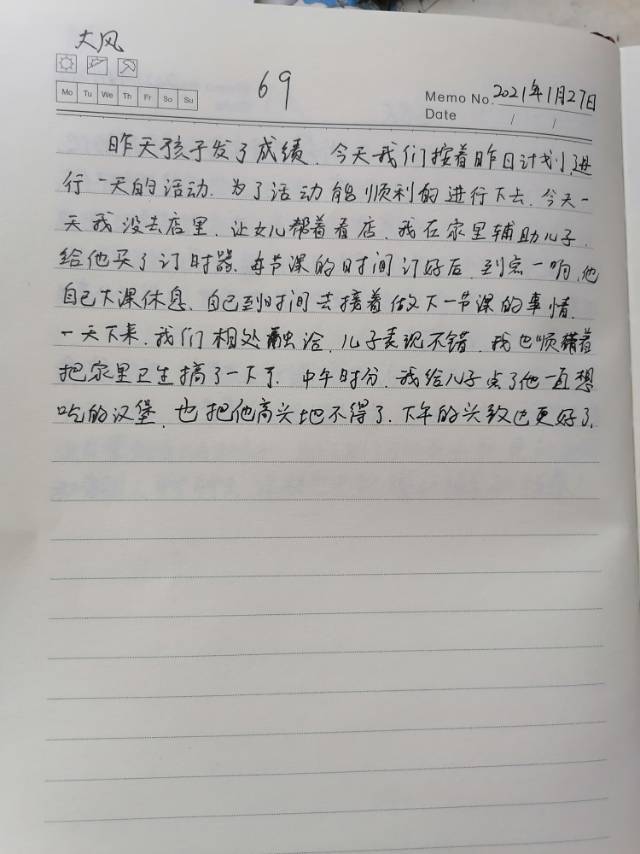 大风
Mo Tu We Th Fr Sa Su
69
Memo No. 2021年1月27日
Date / /
昨天孩子发了成绩.今天我们按着昨日计划进
行一天的活动.为了活动能顺利的进行下去.今天一
天我没去店里.让女儿帮着看店.我在家里辅助儿子.
给他买了订时器.每节课的时间订好后.到点一响.他
自己大课休息.自己到时间去接着做下一节课的事情.
一天下来.我们相处融洽.儿子表现不错.我也顺着
把家里卫生搞了一下了.中午时分.我给儿子点了他一直想
吃的汉堡.也把他高头地不得了.下午的头致也更好了.